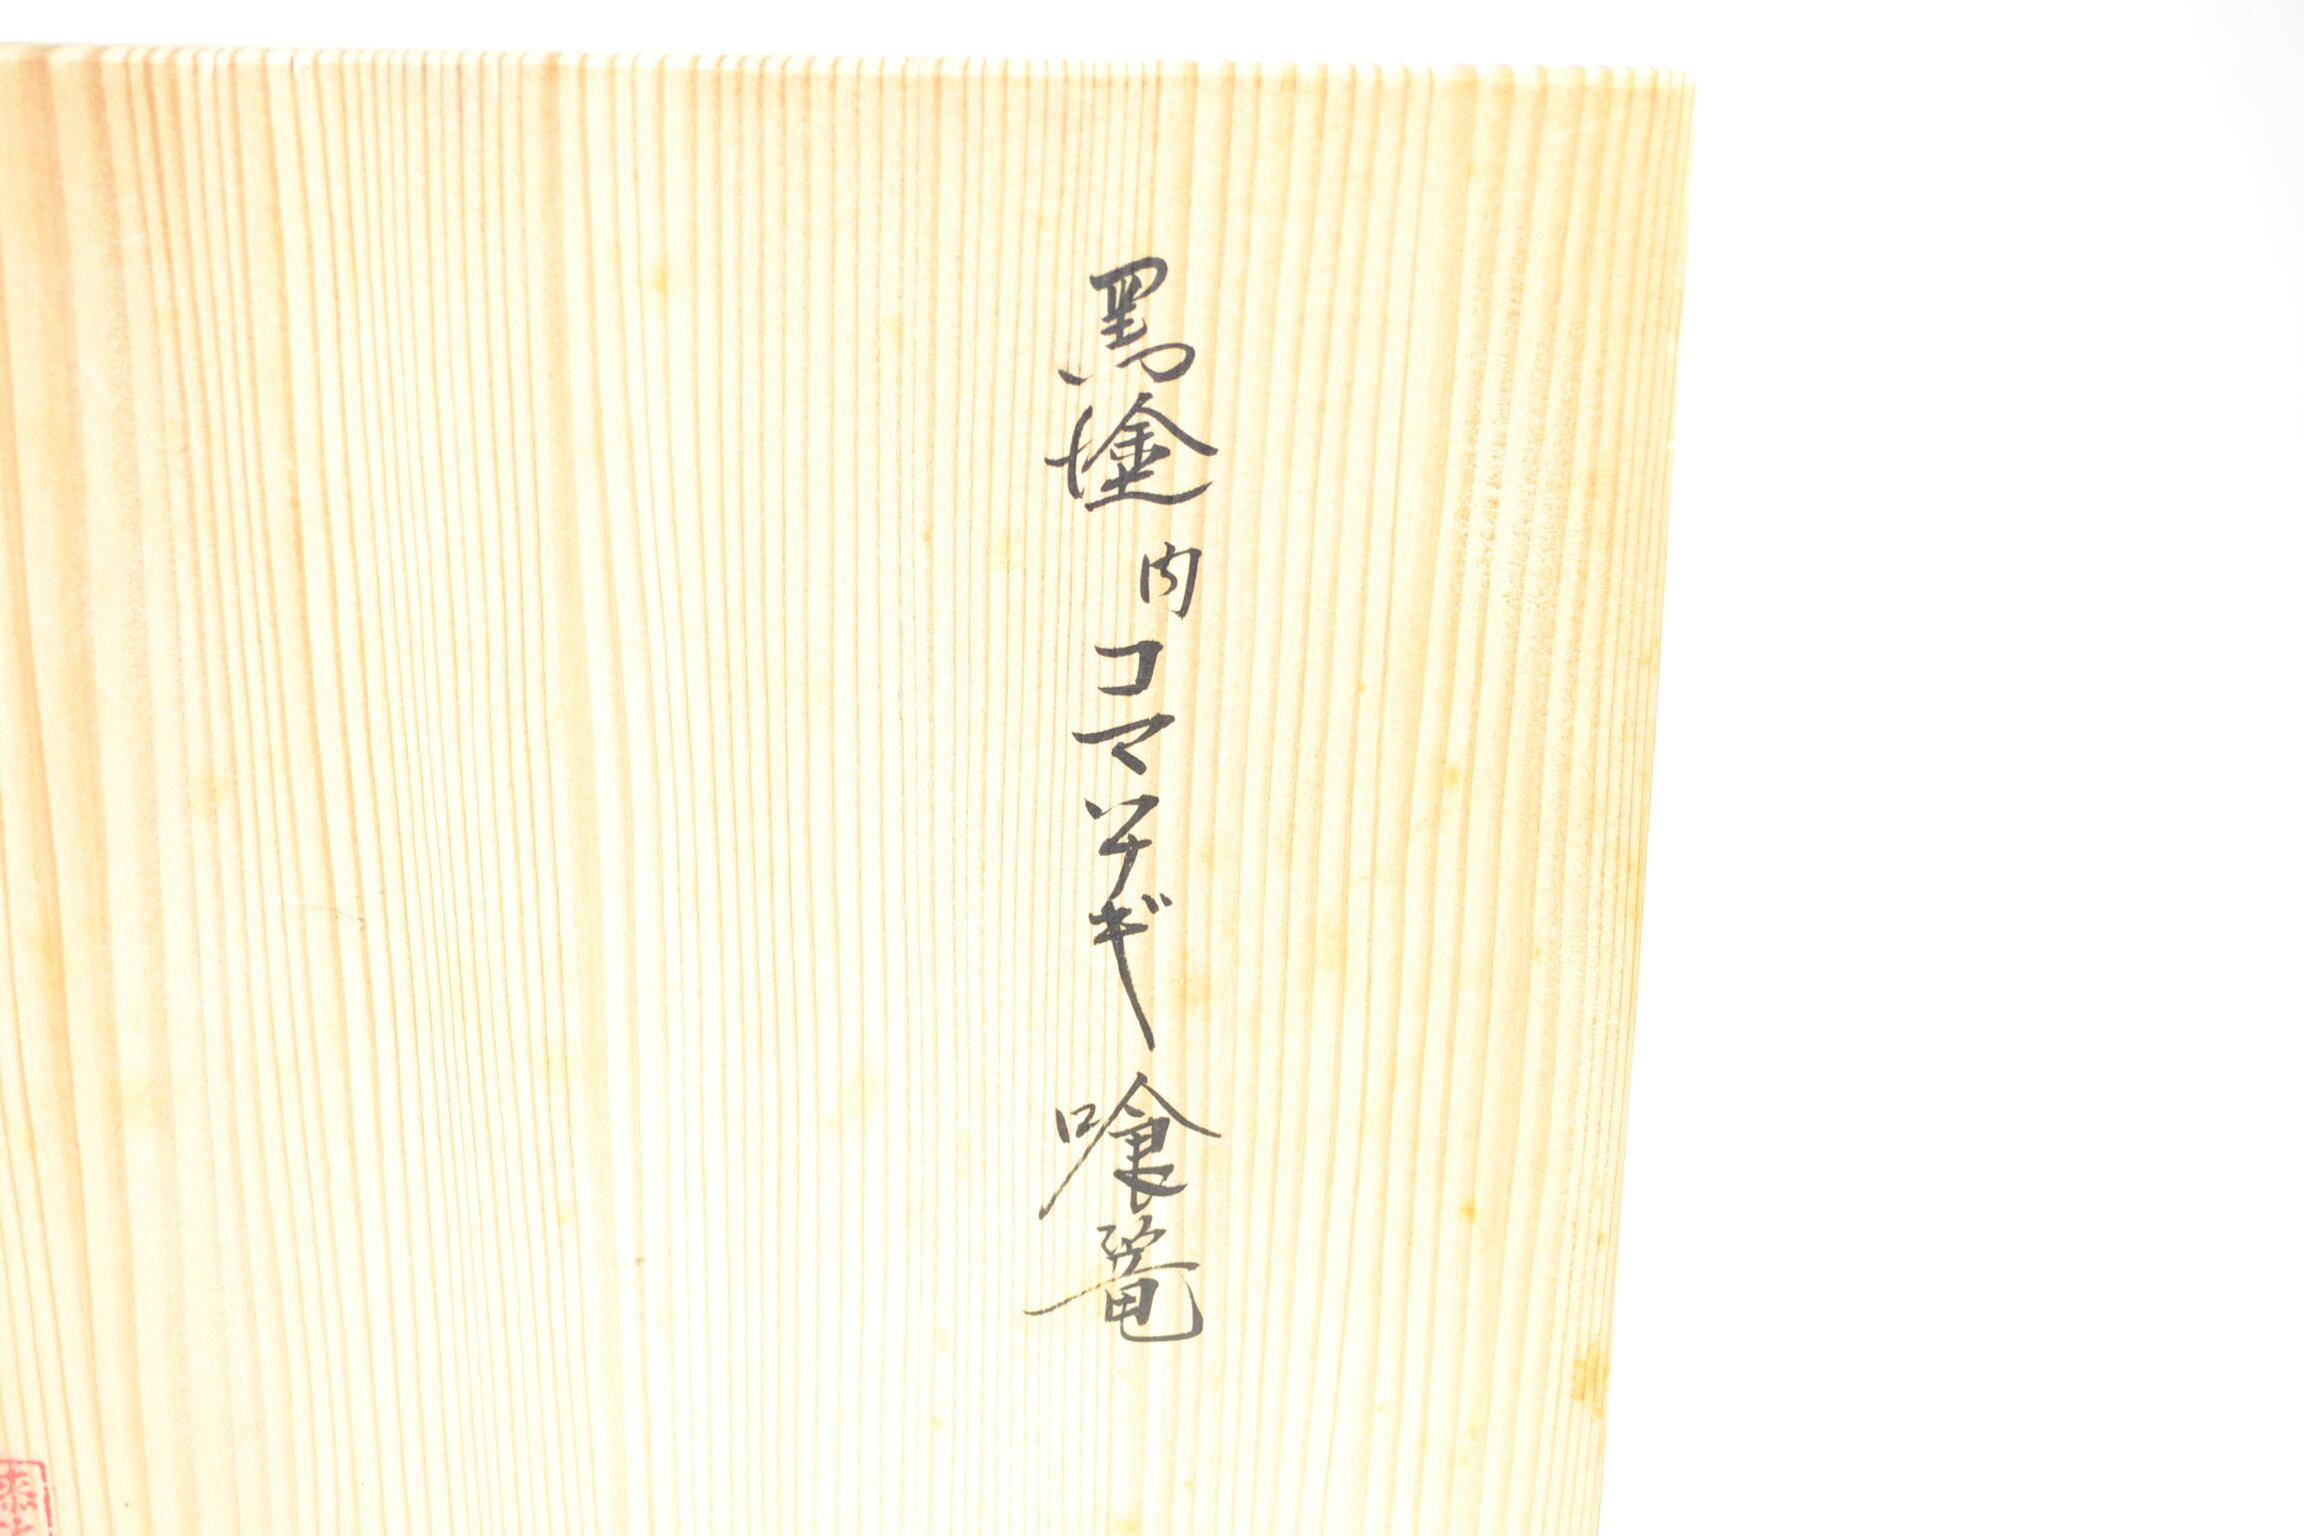 黒塗内コマツナギ喰篭